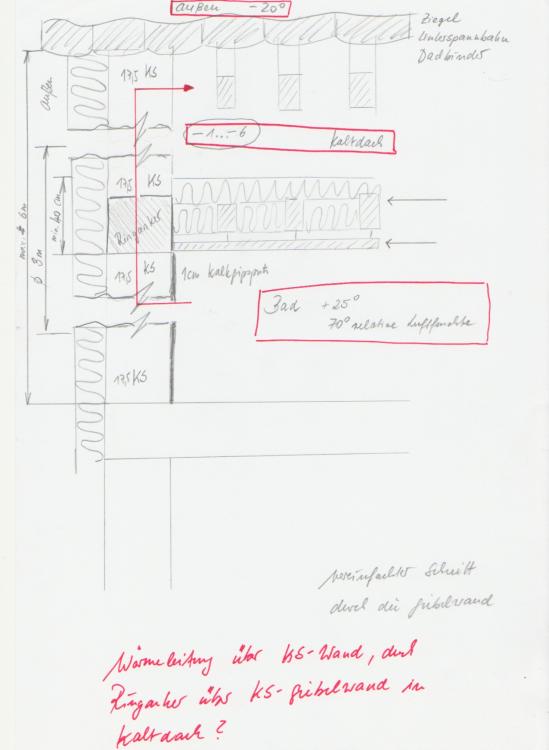 außen -20°
Ziegel
Unterspannbahn
Dachbinder
außen
17,5 KS
-1...-6
Kaltdach
17,5 KS
Ringanker
min. 40 cm
ø 3m
17,5 KS
1cm Kalkgipsputz
Bad +25°
70° relative Luftfeuchte
17,5 KS
vereinfachter Schnitt
durch die Giebelwand
Wärmeleitung über KS-Wand, durch
Ringanker über KS-Giebelwand in
Kaltdach?